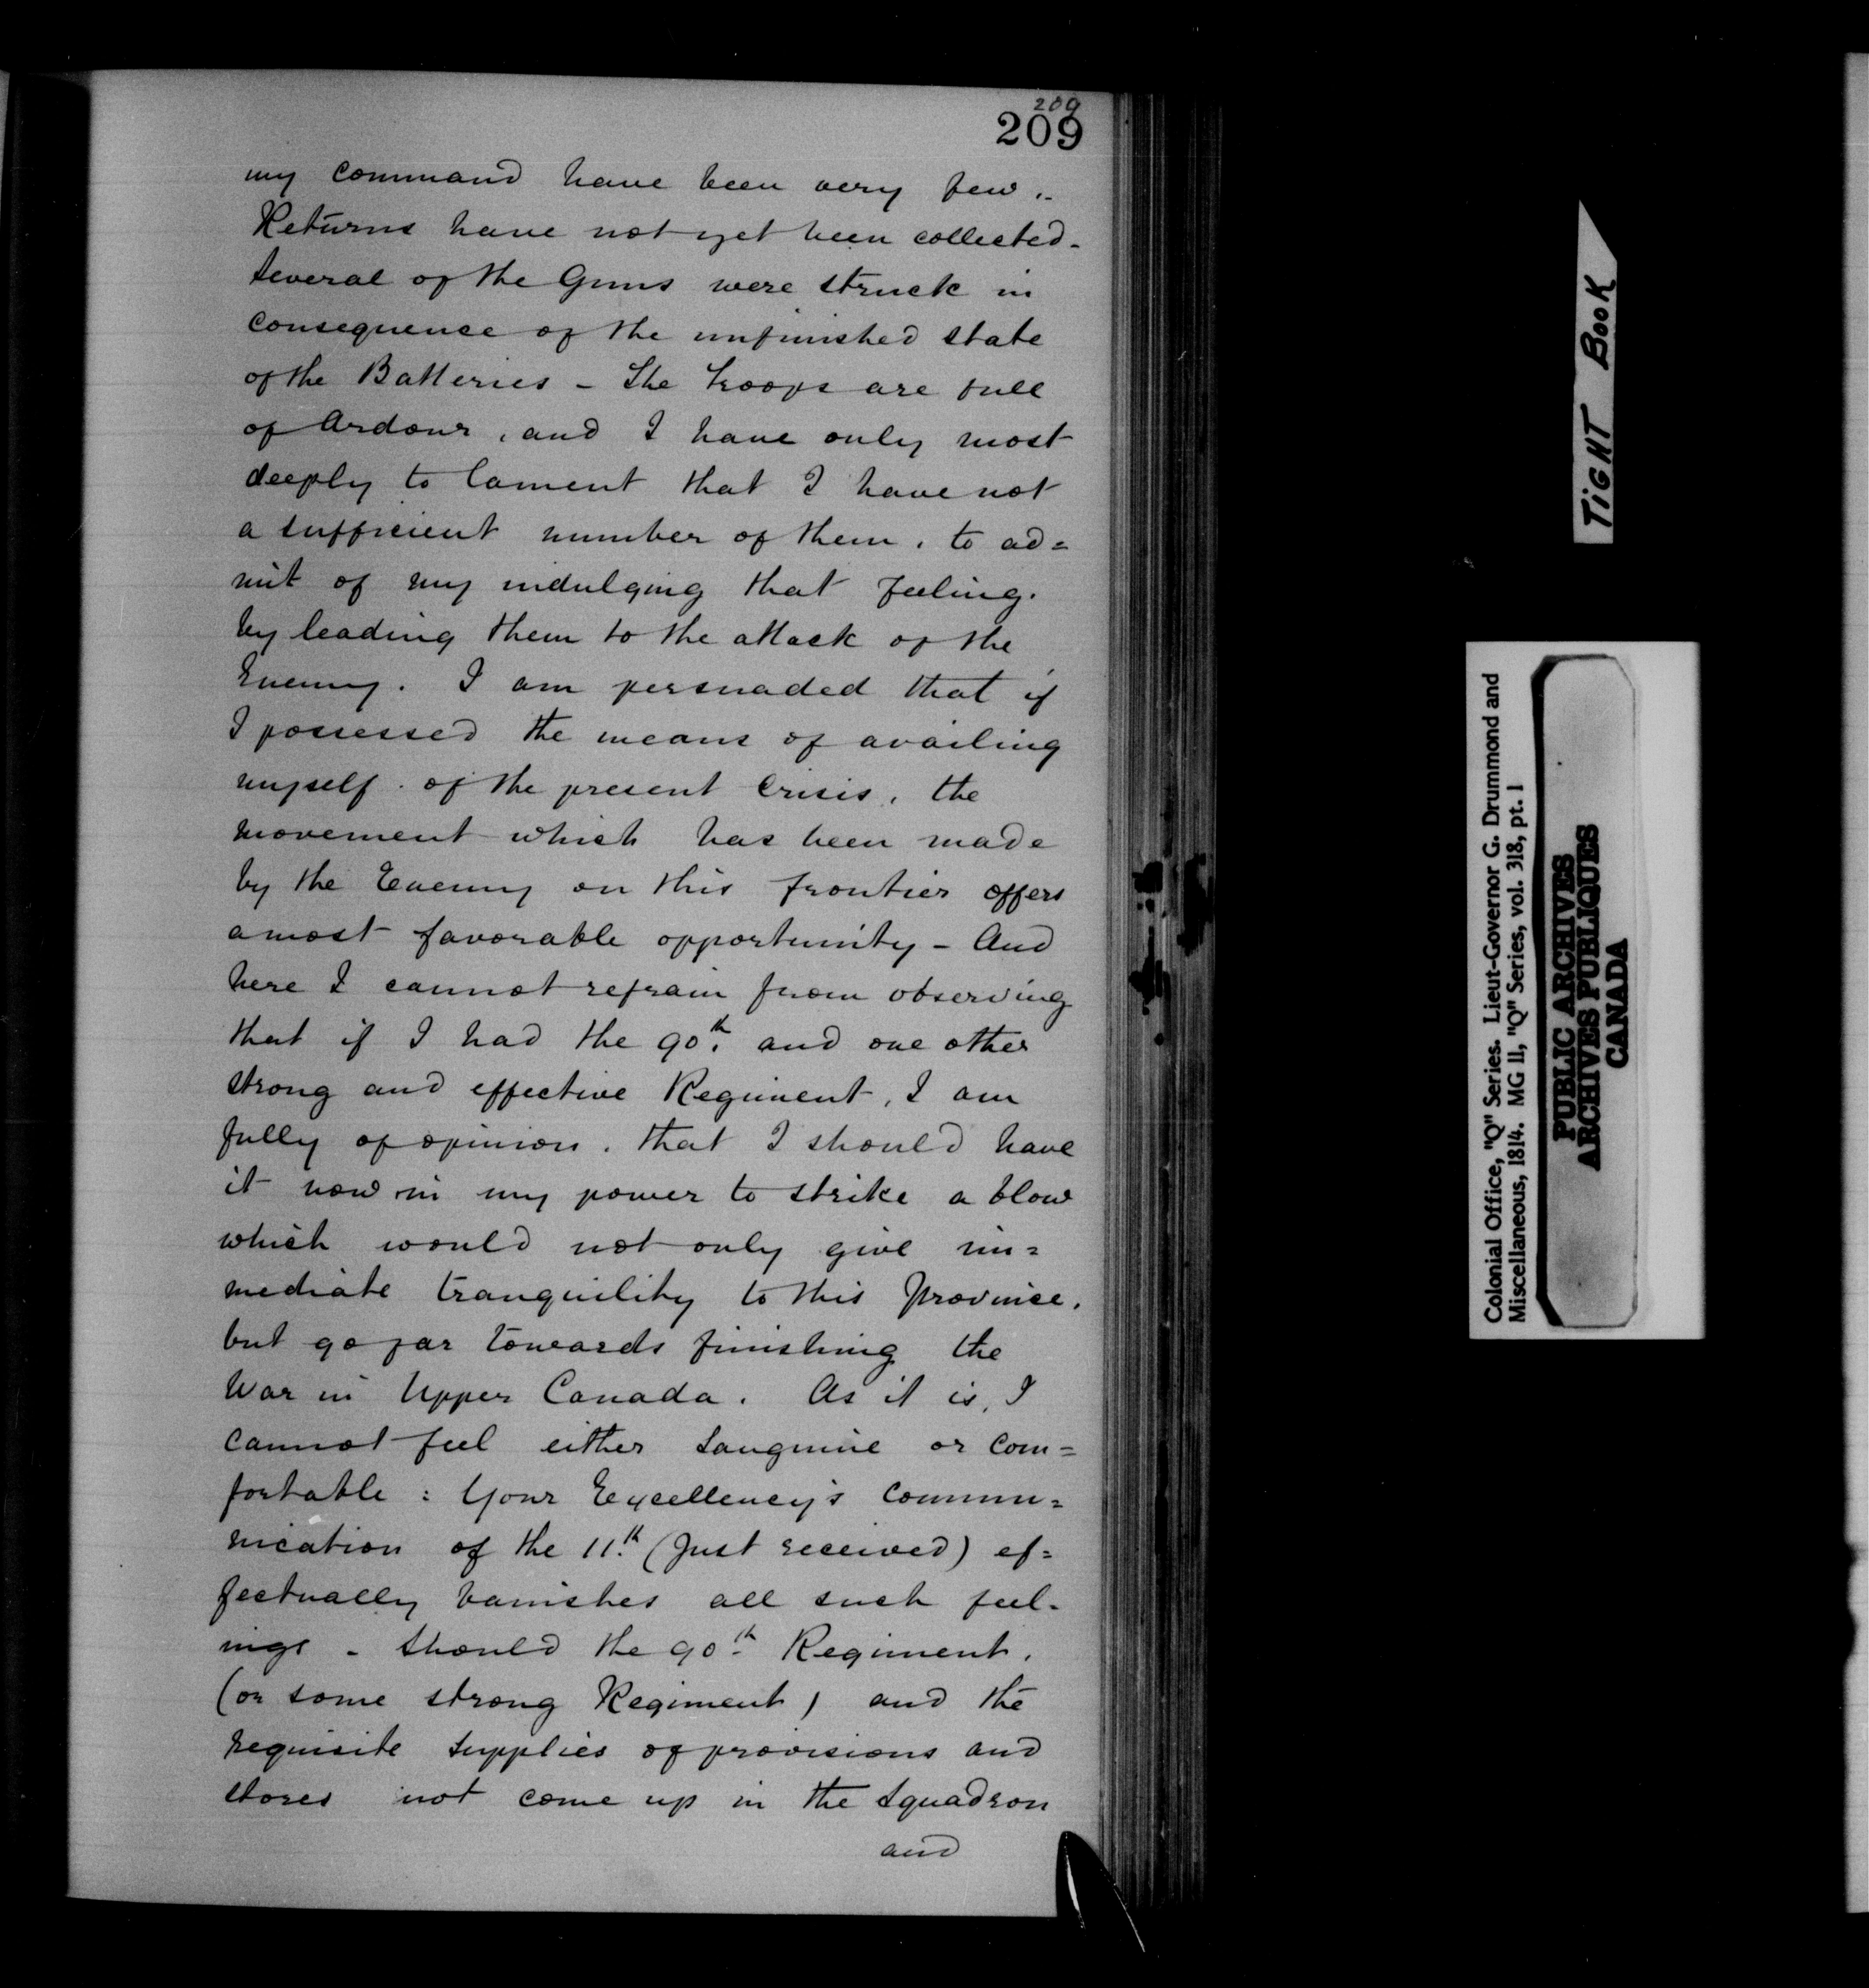 209
209
my command have been very few.
Returns have not yet been collected.
Several of the Guns were struck in
consequence of the unfinished state
of the Batteries - The troops are full
of Ardour, and I have only most
deeply to lament that I have not
a sufficient number of them, to ad=
mit of my indulging that feeling.
by leading them to the attack of the
Enemy. I am persuaded that if
I possessed the means of availing
myself of the present Crisis, the
movement which has been made
by the Enemy on this frontier offers
a most favorable opportunity - And
here I cannot refrain from observing
that if I had the 90th. and one other
strong and effective Regiment, I am
fully of opinion, that I should have
it now in my power to strike a blow
which would not only give im=
mediate tranquility to this Province,
but go far towards finishing the
War in Upper Canada. As it is, I
cannot feel either sanguine or com=
fortable: Your Excellency's commu=
nication of the 11th. (Just received) ef=
fectually banishes all such feel-
ings - Should the 90th Regiment,
(or some strong Regiment) and the
requisite supplies of provisions and
stores not come up in the Squadron
and
TIGHT BOOK
Colonial Office, "Q" Series. Lieut-Governor G. Drummond and
Miscellaneous, 1814. MG 11, "Q" Series, vol. 318, pt. 1
PUBLIC ARCHIVES
ARCHIVES PUBLIQUES
CANADA